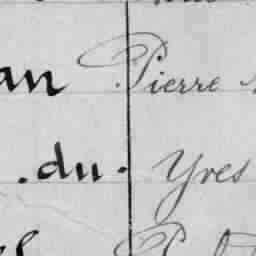 an Pierre
.du. Yves